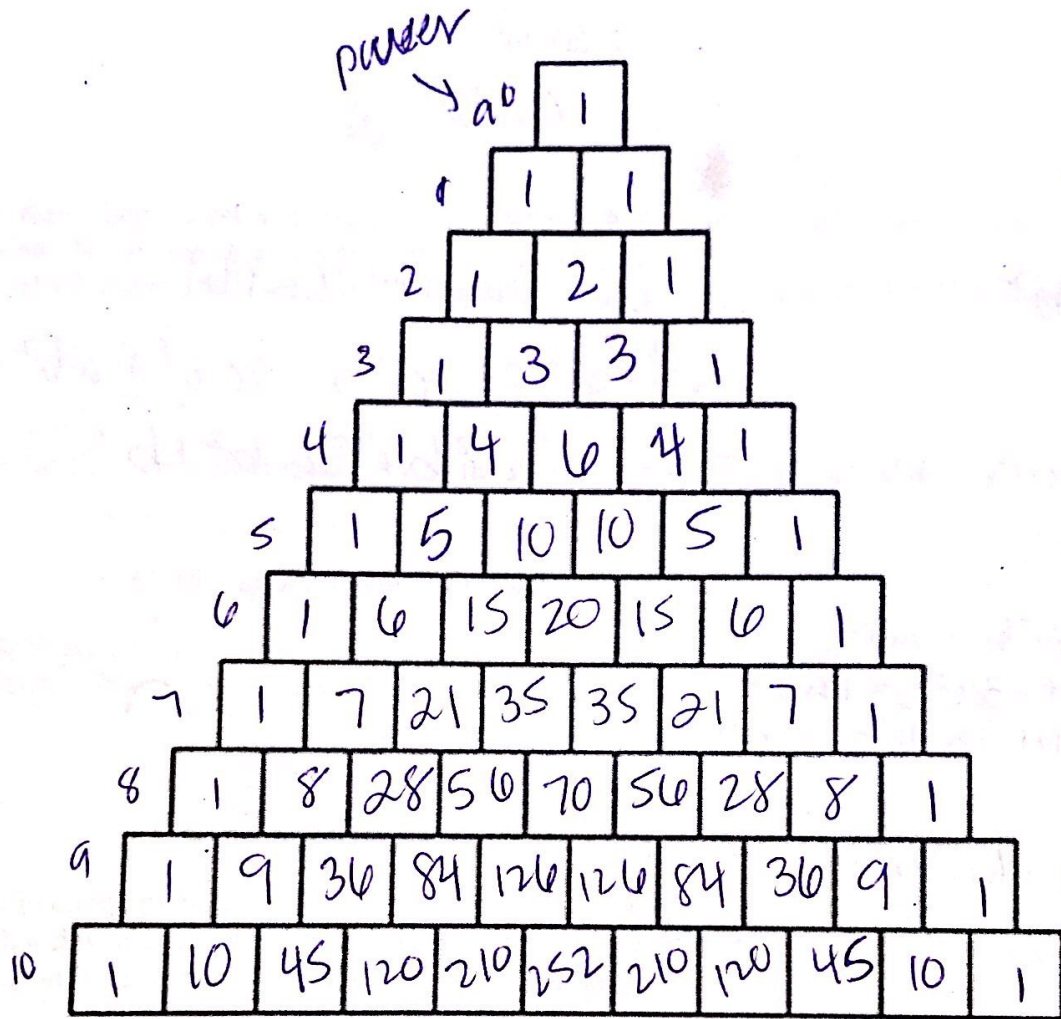 power
a⁰ 1
1 1 1
2 1 2 1
3 1 3 3 1
4 1 4 6 4 1
5 1 5 10 10 5 1
6 1 6 15 20 15 6 1
7 1 7 21 35 35 21 7 1
8 1 8 28 56 70 56 28 8 1
9 1 9 36 84 126 126 84 36 9 1
10 1 10 45 120 210 252 210 120 45 10 1